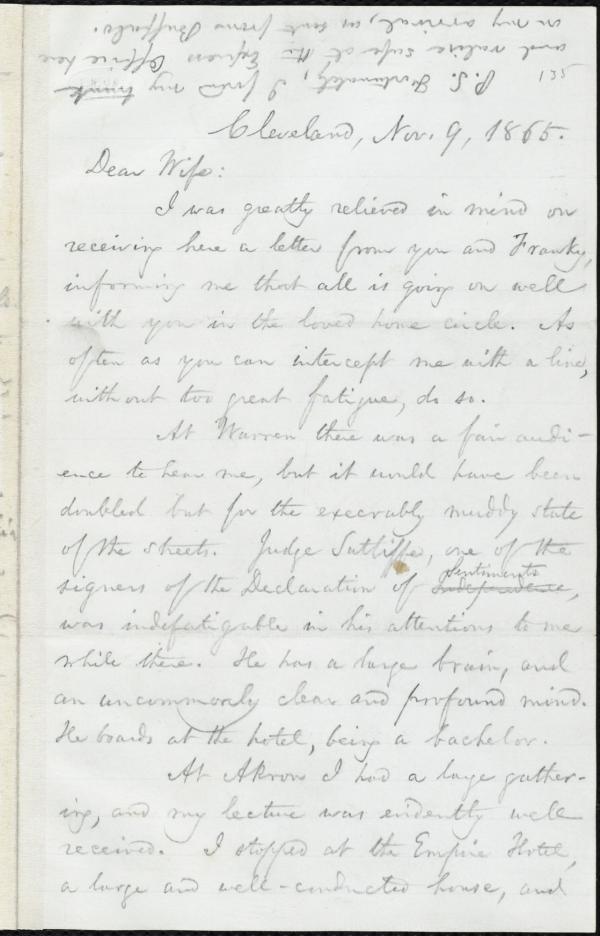 P. S. Fortunately, I found my trunk
and valise safe at the Express Office here
on my arrival, as sent from Buffalo.
135
Cleveland, Nov. 9, 1865.
Dear Wife:
I was greatly relieved in mind on
receiving here a letter from you and Franky,
informing me that all is going on well
with you in the loved home circle. As
often as you can intercept me with a line,
without too great fatigue, do so.
At Warren there was a fair audi-
ence to hear me, but it would have been
doubled but for the execrably muddy state
of the streets. Judge Sutliffe, one of the
signers of the Declaration of Independence Sentiments,
was indefatigable in his attentions to me
while there. He has a large brain, and
an uncommonly clear and profound mind.
He boards at the hotel, being a bachelor.
At Akron I had a large gather-
ing, and my lecture was evidently well
received. I stopped at the Empire Hotel,
a large and well-conducted house, and